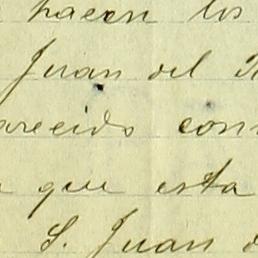 hacen los
Juan del R
arecido con
que esta
S. Juan d